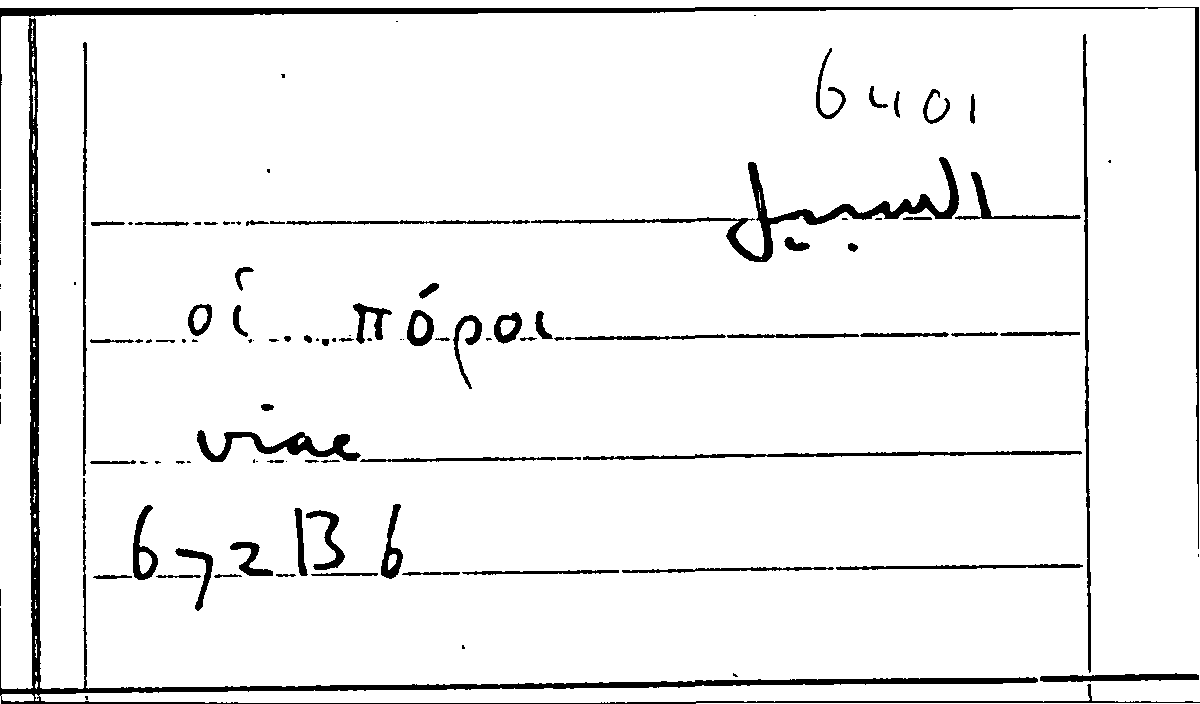 6401
السبيل
οἱ ... πόροι
viae
672B6